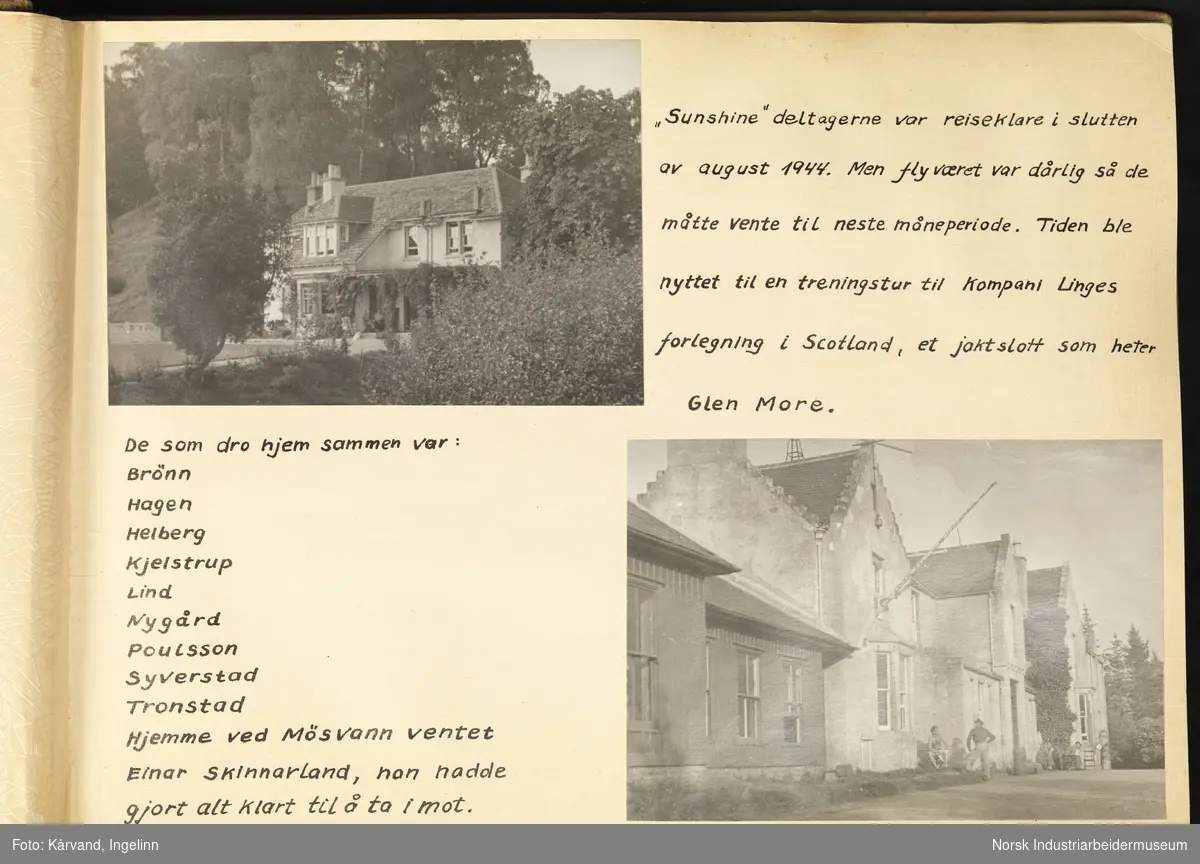 „Sunshine" deltagerne var reiseklare i slutten
av august 1944. Men flyværet var dårlig så de
måtte vente til neste måneperiode. Tiden ble
nyttet til en treningstur til Kompani Linges
forlegning i Scotland, et jaktslott som heter
Glen More.
De som dro hjem sammen var:
Brönn
Hagen
Helberg
Kjelstrup
Lind
Nygård
Poulsson
Syverstad
Tronstad
Hjemme ved Mösvann ventet
Einar Skinnarland, han hadde
gjort alt klart til å ta imot.
Foto: Kårvand, Ingelinn
Norsk Industriarbeidermuseum